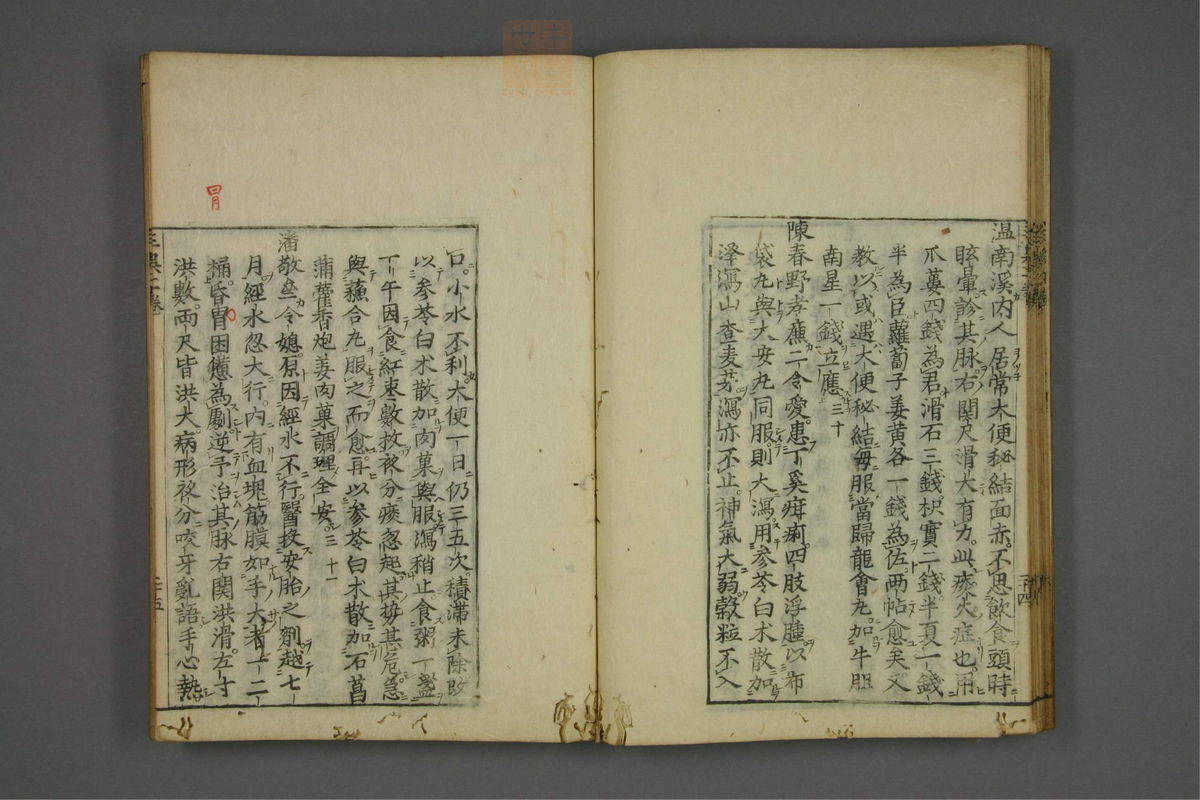 温南溪内人居常大便秘結面赤不思飲食頭時
眩暈診其脉右関尺滑大有力此痰火症也用
爪蔞四錢為君滑石三錢枳實二錢半夏一錢
半為臣蘿蔔子姜黄各一錢為佐両帖愈矣又
教以或遇大便秘結毎服當歸龍會丸加牛胆
南星一錢立應三十
陳春野孝廉二令愛患丁奚疳痢四肢浮腫以布
袋丸與大安丸同服則大瀉用参苓白术散加
澤瀉山查麦芽瀉亦不止神氣大弱穀粒不入
口小水不利大便一日仍三五次積滯未除改
以参苓白术散加肉菓與服瀉稍止食粥一盞
下午因食紅棗數枚夜分痰忽起其勢甚危急
與蘓合丸服之而愈再以参苓白术散加石菖
蒲藿香炮姜肉菓調理全安三十一
潘敬垒令媳原因經水不行醫投安胎之劑越七
月經水忽大行内有血塊筋膜如手大者一二
桶昏冒困憊為劇逆予治其脉右関洪滑左寸
洪數両尺皆洪大病形夜分咬牙亂語手心熱
冒
二十五